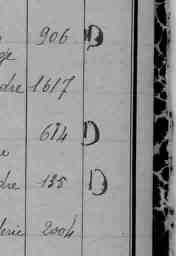 906 D
ge
dre 1617
614 D
e
dre 135 D
derie 2004